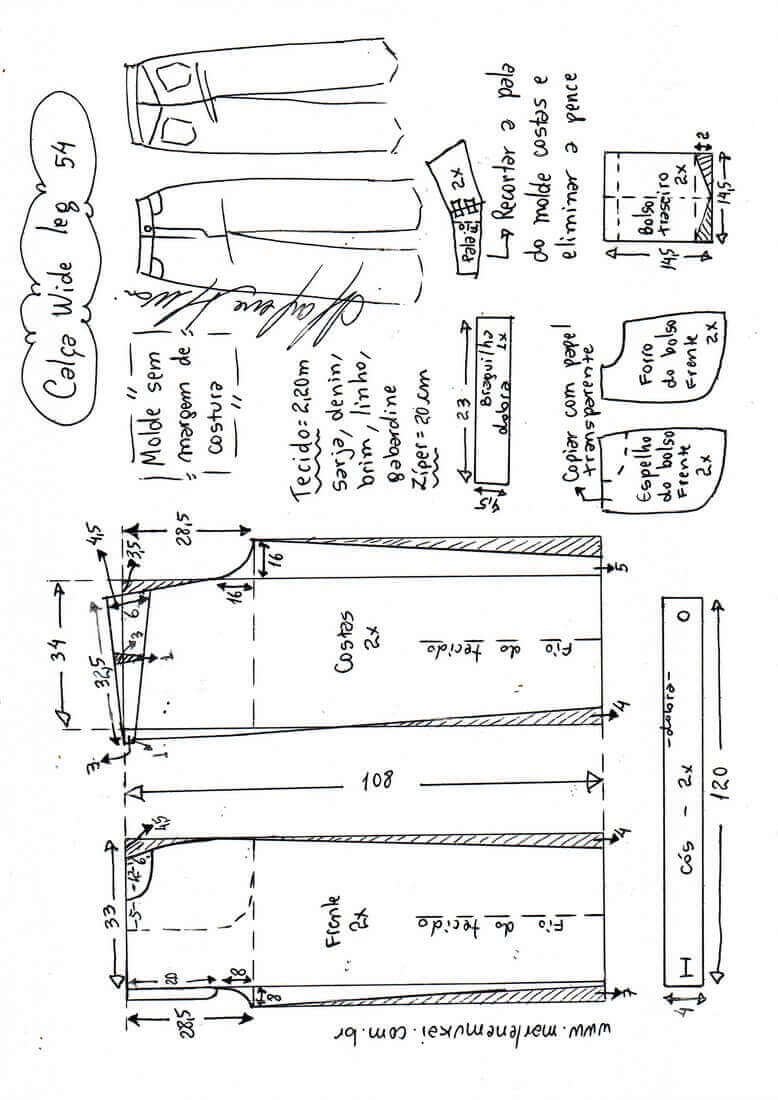 Calça Wide leg 54
"Molde sem
margem de
costura"
Tecido = 2,20m
sarja, denin,
brim, linho,
gabardine
Zíper = 20 cm
Pala
2x
Recortar a pala
do molde costas e
eliminar a pence
23
4,5
Braguilha
1x
dobra
Bolso
traseiro
2x
14,5
14,5
2
Copiar com papel
transparente
Espelho
do bolso
Frente
2x
Forro
do bolso
Frente
2x
34
32,5
4,5
3,5
6
3
1
3
1
28,5
16
16
Costas
2x
Fio do tecido
5
4
108
33
4,5
-5-
-12-
6
20
8
8
28,5
Frente
2x
Fio do tecido
4
7
-dobra-
cós - 2x
120
4
www.marlenemukai.com.br